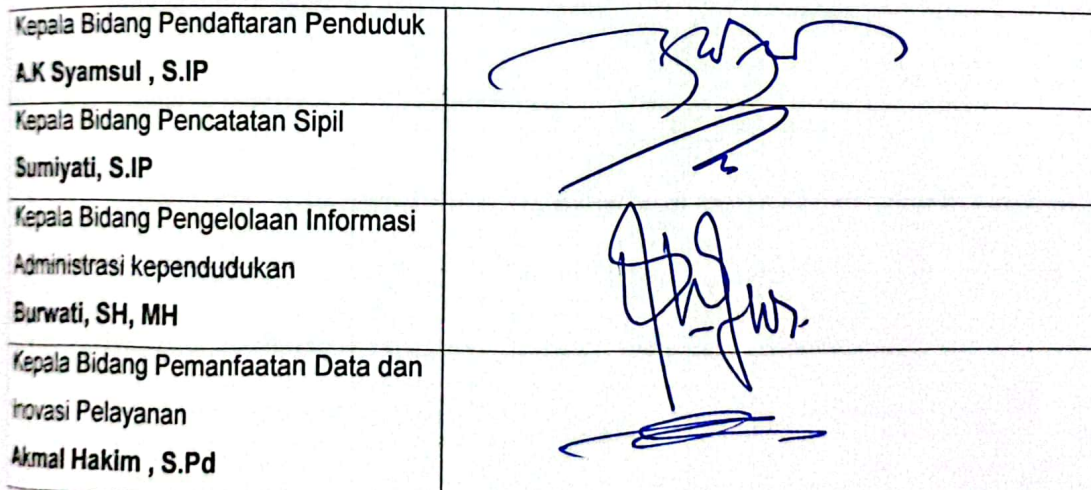 Kepala Bidang Pendaftaran Penduduk
A.K Syamsul , S.IP
Kepala Bidang Pencatatan Sipil
Sumiyati, S.IP
Kepala Bidang Pengelolaan Informasi
Administrasi kependudukan
Burwati, SH, MH
Kepala Bidang Pemanfaatan Data dan
Inovasi Pelayanan
Akmal Hakim , S.Pd